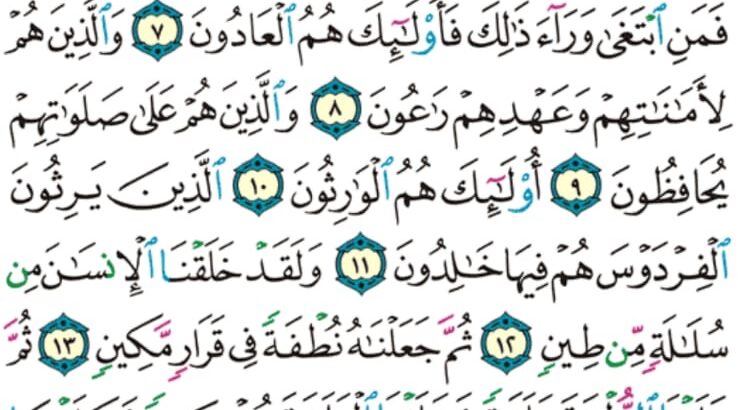 فَمَنِ ٱبۡتَغَىٰ وَرَآءَ ذَٰلِكَ فَأُوْلَٰٓئِكَ هُمُ ٱلۡعَادُونَ ٧ وَٱلَّذِينَ هُمۡ
لِأَمَٰنَٰتِهِمۡ وَعَهۡدِهِمۡ رَٰعُونَ ٨ وَٱلَّذِينَ هُمۡ عَلَىٰ صَلَوَٰتِهِمۡ
يُحَافِظُونَ ٩ أُوْلَٰٓئِكَ هُمُ ٱلۡوَٰرِثُونَ ١٠ ٱلَّذِينَ يَرِثُونَ
ٱلۡفِرۡدَوۡسَ هُمۡ فِيهَا خَٰلِدُونَ ١١ وَلَقَدۡ خَلَقۡنَا ٱلۡإِنسَٰنَ مِن
سُلَٰلَةٖ مِّن طِينٖ ١٢ ثُمَّ جَعَلۡنَٰهُ نُطۡفَةٗ فِي قَرَارٖ مَّكِينٖ ١٣ ثُمَّ